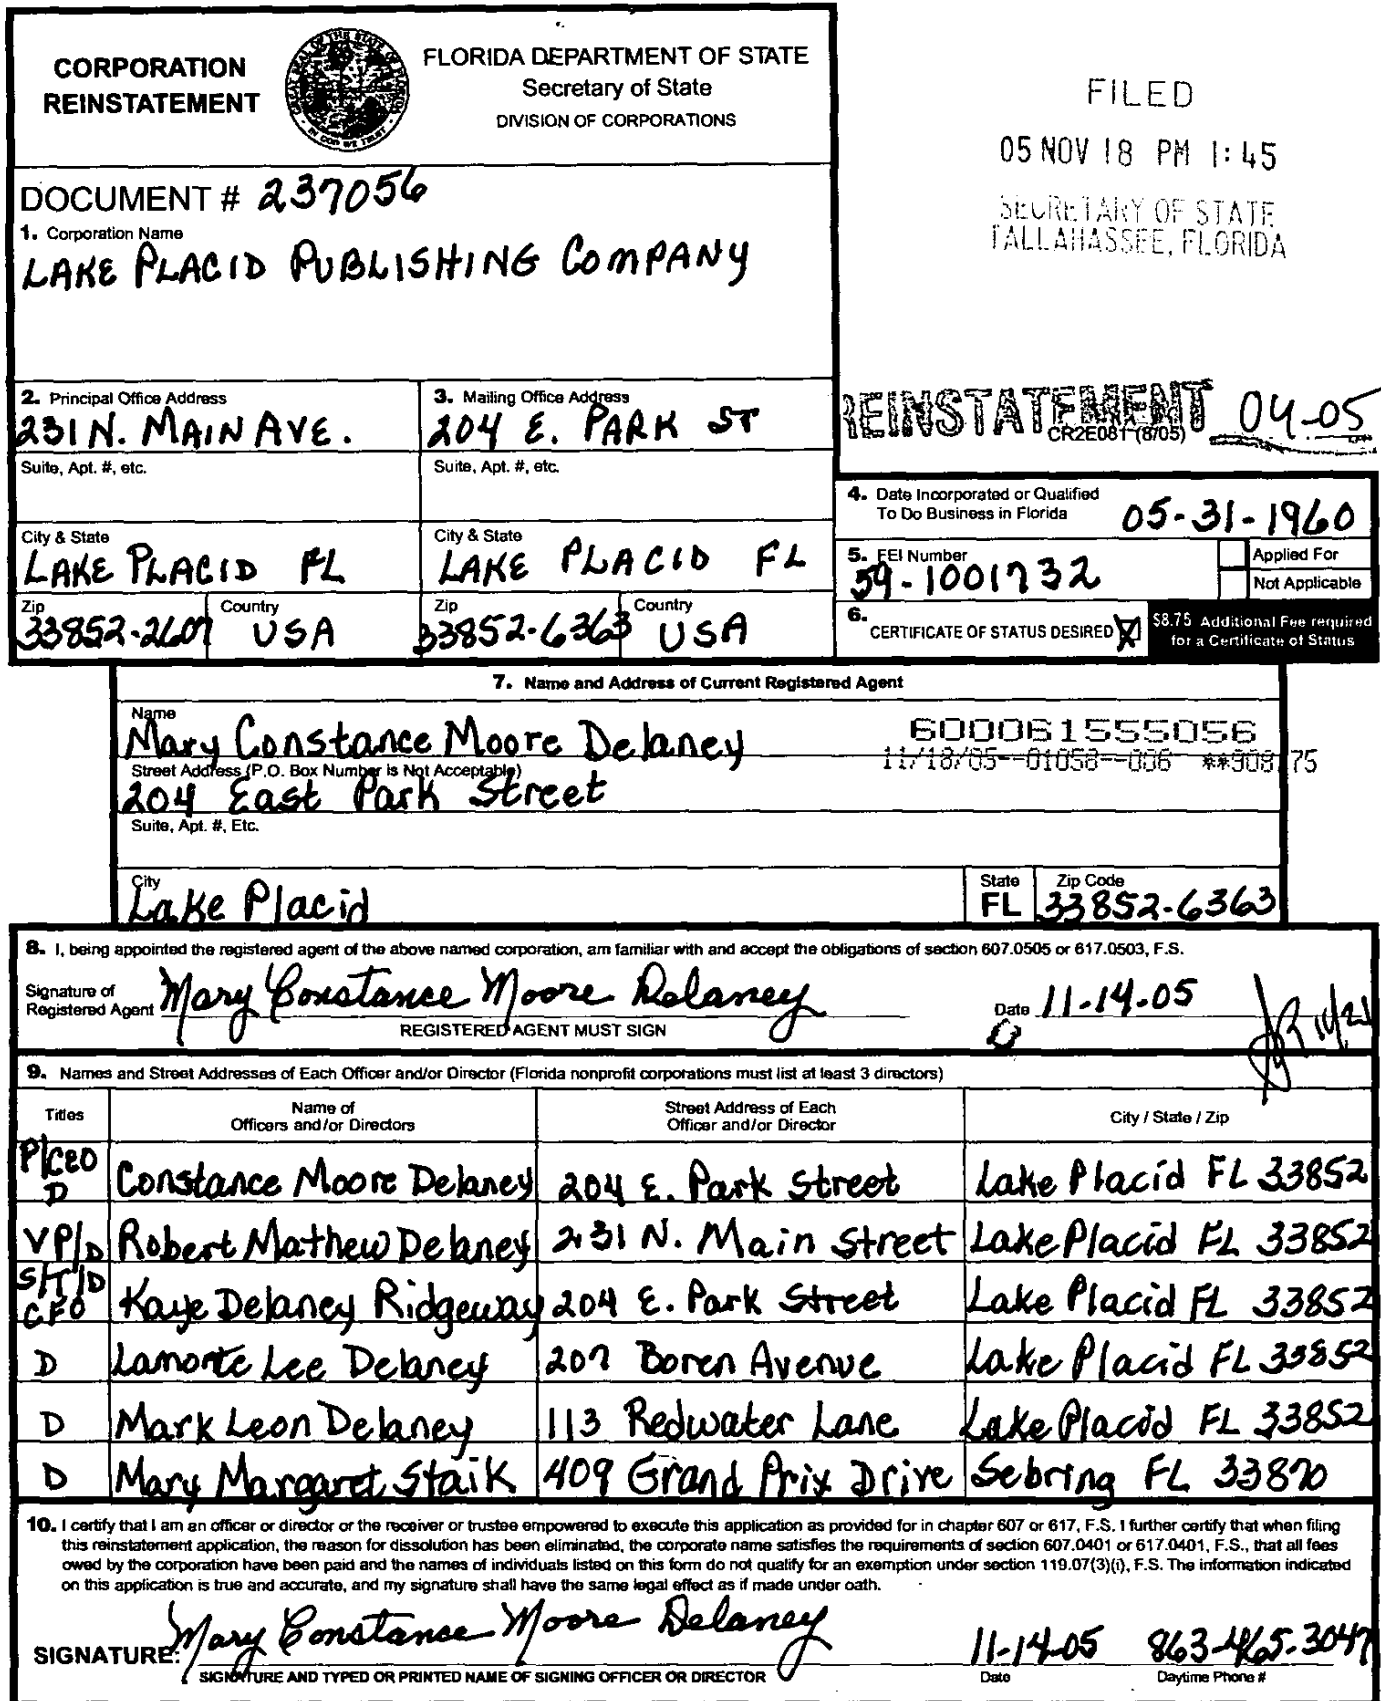 CORPORATION
REINSTATEMENT
FLORIDA DEPARTMENT OF STATE
Secretary of State
DIVISION OF CORPORATIONS
FILED
05 NOV 18 PM 1:45
SECRETARY OF STATE
TALLAHASSEE, FLORIDA
DOCUMENT # 237056
1. Corporation Name
LAKE PLACID PUBLISHING COMPANY
REINSTATEMENT 04-05
CR2E081 (8/05)
2. Principal Office Address
231 N. MAIN AVE.
Suite, Apt. #, etc.
City & State
LAKE PLACID FL
Zip
33852-2607
Country
USA
3. Mailing Office Address
204 E. PARK ST
Suite, Apt. #, etc.
City & State
LAKE PLACID FL
Zip
33852-6363
Country
USA
4. Date Incorporated or Qualified
To Do Business in Florida 05-31-1960
5. FEI Number
59-1001732
Applied For
Not Applicable
6. CERTIFICATE OF STATUS DESIRED
$8.75 Additional Fee required
for a Certificate of Status
7. Name and Address of Current Registered Agent
Name
Mary Constance Moore Delaney
600061555056
11/18/05--01058--006 **908.75
Street Address (P.O. Box Number is Not Acceptable)
204 East Park Street
Suite, Apt. #, Etc.
City
Lake Placid
State
FL
Zip Code
33852-6363
8. I, being appointed the registered agent of the above named corporation, am familiar with and accept the obligations of section 607.0505 or 617.0503, F.S.
Signature of
Registered Agent Mary Constance Moore Delaney
Date 11-14-05
REGISTERED AGENT MUST SIGN
9. Names and Street Addresses of Each Officer and/or Director (Florida nonprofit corporations must list at least 3 directors)
Titles
Name of
Officers and/or Directors
Street Address of Each
Officer and/or Director
City / State / Zip
P/CEO
D Constance Moore Delaney 204 E. Park Street Lake Placid FL 33852
VP/D Robert Mathew Delaney 231 N. Main Street Lake Placid FL 33852
S/T/D
CFO Kaye Delaney Ridgeway 204 E. Park Street Lake Placid FL 33852
D Lamonte Lee Delaney 207 Boren Avenue Lake Placid FL 33852
D Mark Leon Delaney 113 Redwater Lane Lake Placid FL 33852
D Mary Margaret Staik 409 Grand Prix Drive Sebring FL 33870
10. I certify that I am an officer or director or the receiver or trustee empowered to execute this application as provided for in chapter 607 or 617, F.S. I further certify that when filing
this reinstatement application, the reason for dissolution has been eliminated, the corporate name satisfies the requirements of section 607.0401 or 617.0401, F.S., that all fees
owed by the corporation have been paid and the names of individuals listed on this form do not qualify for an exemption under section 119.07(3)(i), F.S. The information indicated
on this application is true and accurate, and my signature shall have the same legal effect as if made under oath.
SIGNATURE: Mary Constance Moore Delaney 11-14-05 863-465-3047
SIGNATURE AND TYPED OR PRINTED NAME OF SIGNING OFFICER OR DIRECTOR
Date
Daytime Phone #